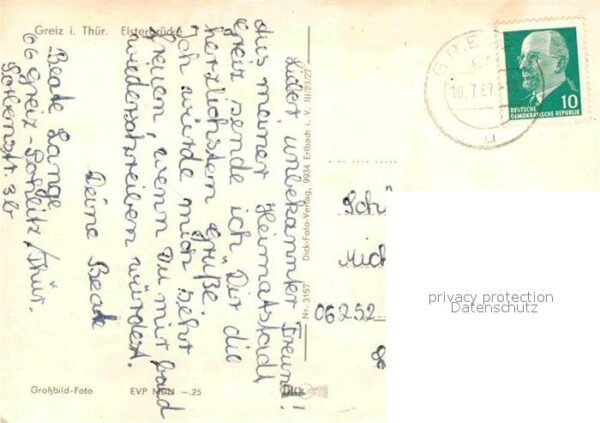 Greiz i. Thür. Elsterbrücke
Lieber unbekannter Freund!
Aus meiner Heimatstadt
Greiz sende ich Dir die
herzlichsten Grüße.
Ich würde mich sehr
freuen, wenn Du mir bald
wiederschreiben würdest.
Deine Beate
Beate Lange
66 Greiz-
/Thür.
3b
Großbild-Foto EVP MDN -.25
Nr. 3157 Dick-Foto-Verlag, 9934 Erlbach i. V. III/23/27
DEUTSCHE
DEMOKRATISCHE REPUBLIK
10
Schü
Mich
privacy protection
Datenschutz